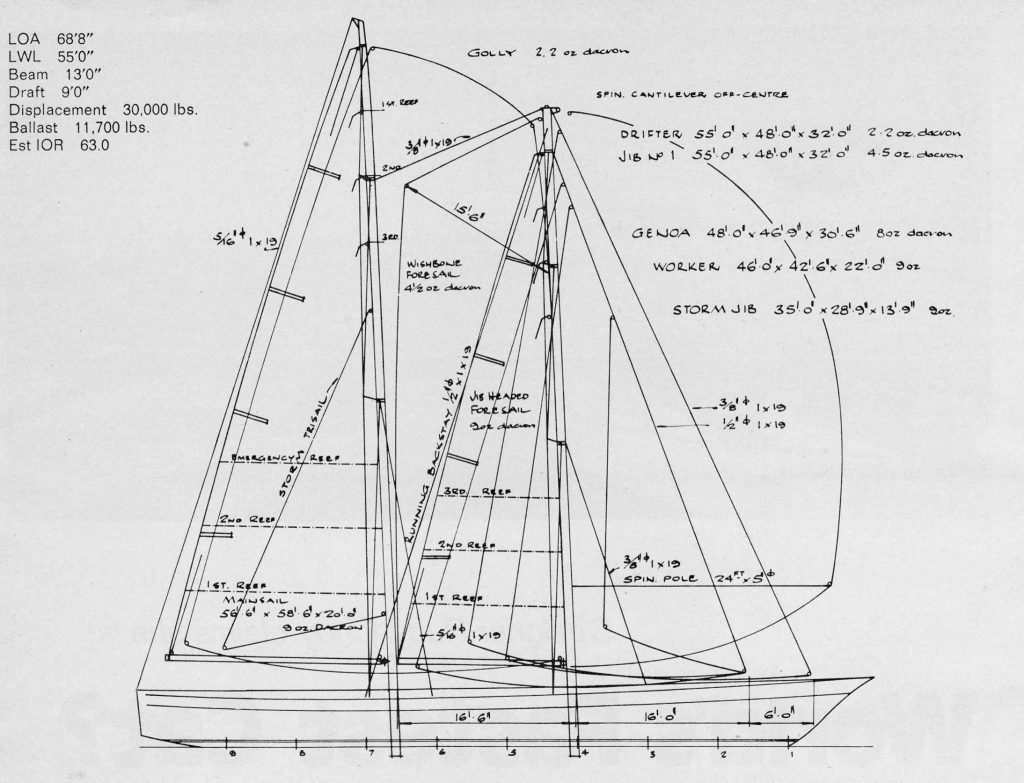 LOA 68'8"
LWL 55'0"
Beam 13'0"
Draft 9'0"
Displacement 30,000 lbs.
Ballast 11,700 lbs.
Est IOR 63.0
GOLLY 2.2 oz dacron
SPIN. CANTILEVER OFF-CENTRE
DRIFTER 55'.0" x 48'.0" x 32'.0" 2.2 oz. dacron
JIB No 1 55'.0" x 48'.0" x 32'.0" 4.5 oz. dacron
GENOA 48'.0" x 46'.9" x 30'.6" 8oz dacron
WORKER 46'.0" x 42'.6" x 22'.0" 9oz
STORM JIB 35'.0" x 28'.9" x 13'.9" 9oz.
1ST. REEF
2ND
3RD.
3/8" φ 1x19
15'.6"
5/16" φ 1x19
WISHBONE
FORESAIL
4½ oz dacron
STORM TRISAIL
RUNNING BACKSTAY 1/2" φ 1x19
JIB HEADED
FORESAIL
9oz dacron
3/8" φ 1x19
1/2" φ 1x19
EMERGENCY REEF
3RD REEF
2ND REEF
2ND REEF
3/8" φ 1x19
SPIN. POLE 24FT x 5" φ
1ST. REEF
1ST REEF
MAINSAIL
56'.6" x 58'.6" x 20'.0"
9oz. DACRON
5/16" φ 1x19
16'.6"
16'.0"
6'.0"
9 8 7 6 5 4 3 2 1